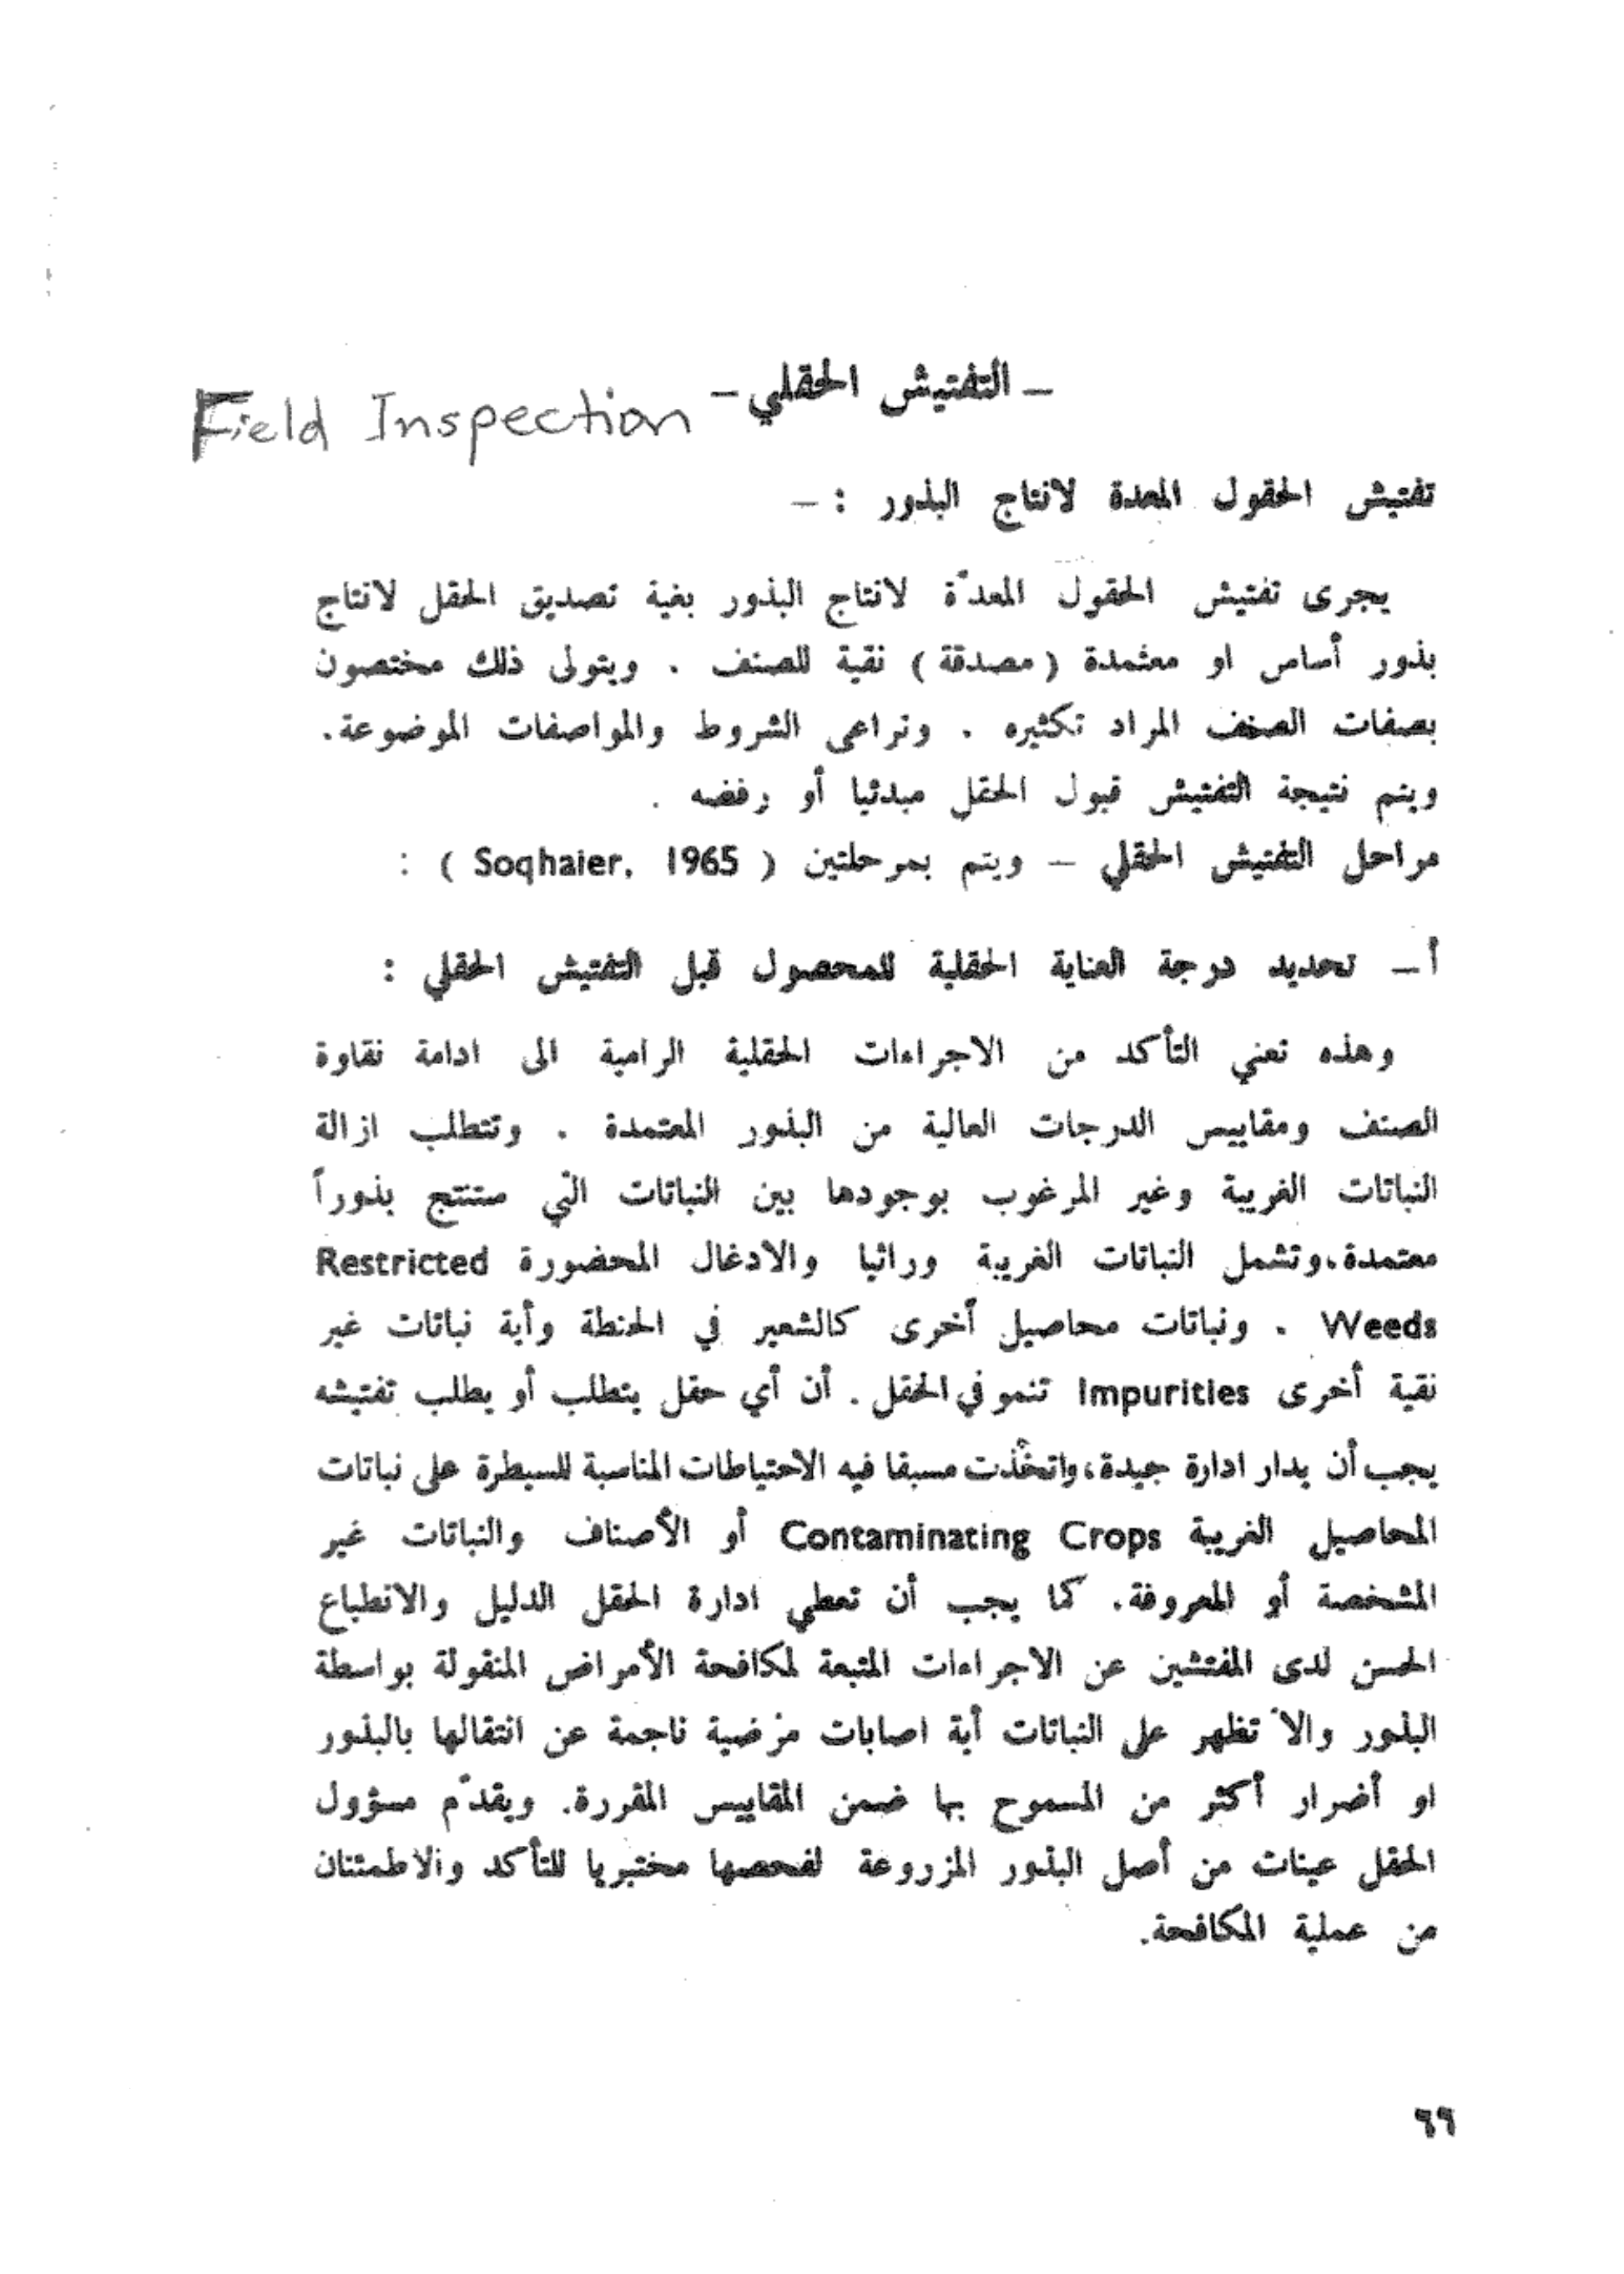 – التفتيش الحقلي – Field Inspection
تفتيش الحقول المعدة لانتاج البذور : –
يجرى تفتيش الحقول المعدّة لانتاج البذور بغية تصديق الحقل لانتاج
بذور أساس او معتمدة ( مصدقة ) نقية للصنف . ويتولى ذلك مختصون
بصفات الصنف المراد تكثيره . وتراعى الشروط والمواصفات الموضوعة.
ويتم نتيجة التفتيش قبول الحقل مبدئيا أو رفضه .
مراحل التفتيش الحقلي – ويتم بمرحلتين ( Soqhaier, 1965 ) :
أ – تحديد درجة العناية الحقلية للمحصول قبل التفتيش الحقلي :
وهذه تعني التأكد من الاجراءات الحقلية الرامية الى ادامة نقاوة
الصنف ومقاييس الدرجات العالية من البذور المعتمدة . وتتطلب ازالة
النباتات الغريبة وغير المرغوب بوجودها بين النباتات التي ستنتج بذوراً
معتمدة، وتشمل النباتات الغريبة وراثيا والادغال المحضورة Restricted
Weeds . ونباتات محاصيل أخرى كالشعير في الحنطة وأية نباتات غير
نقية أخرى Impurities تنمو في الحقل . أن أي حقل يتطلب أو يطلب تفتيشه
يجب أن يدار ادارة جيدة، واتخُذت مسبقا فيه الاحتياطات المناسبة للسيطرة على نباتات
المحاصيل الغريبة Contaminating Crops أو الأصناف والنباتات غير
المشخصة أو المعروفة. كما يجب أن تعطي ادارة الحقل الدليل والانطباع
الحسن لدى المفتشين عن الاجراءات المتبعة لمكافحة الأمراض المنقولة بواسطة
البذور والاّ تظهر على النباتات أية اصابات مرضية ناجمة عن انتقالها بالبذور
او أضرار أكثر من المسموح بها ضمن المقاييس المقررة. ويقدّم مسؤول
الحقل عينات من أصل البذور المزروعة لفحصها مختبريا للتأكد والاطمئنان
من عملية المكافحة.
٦٩